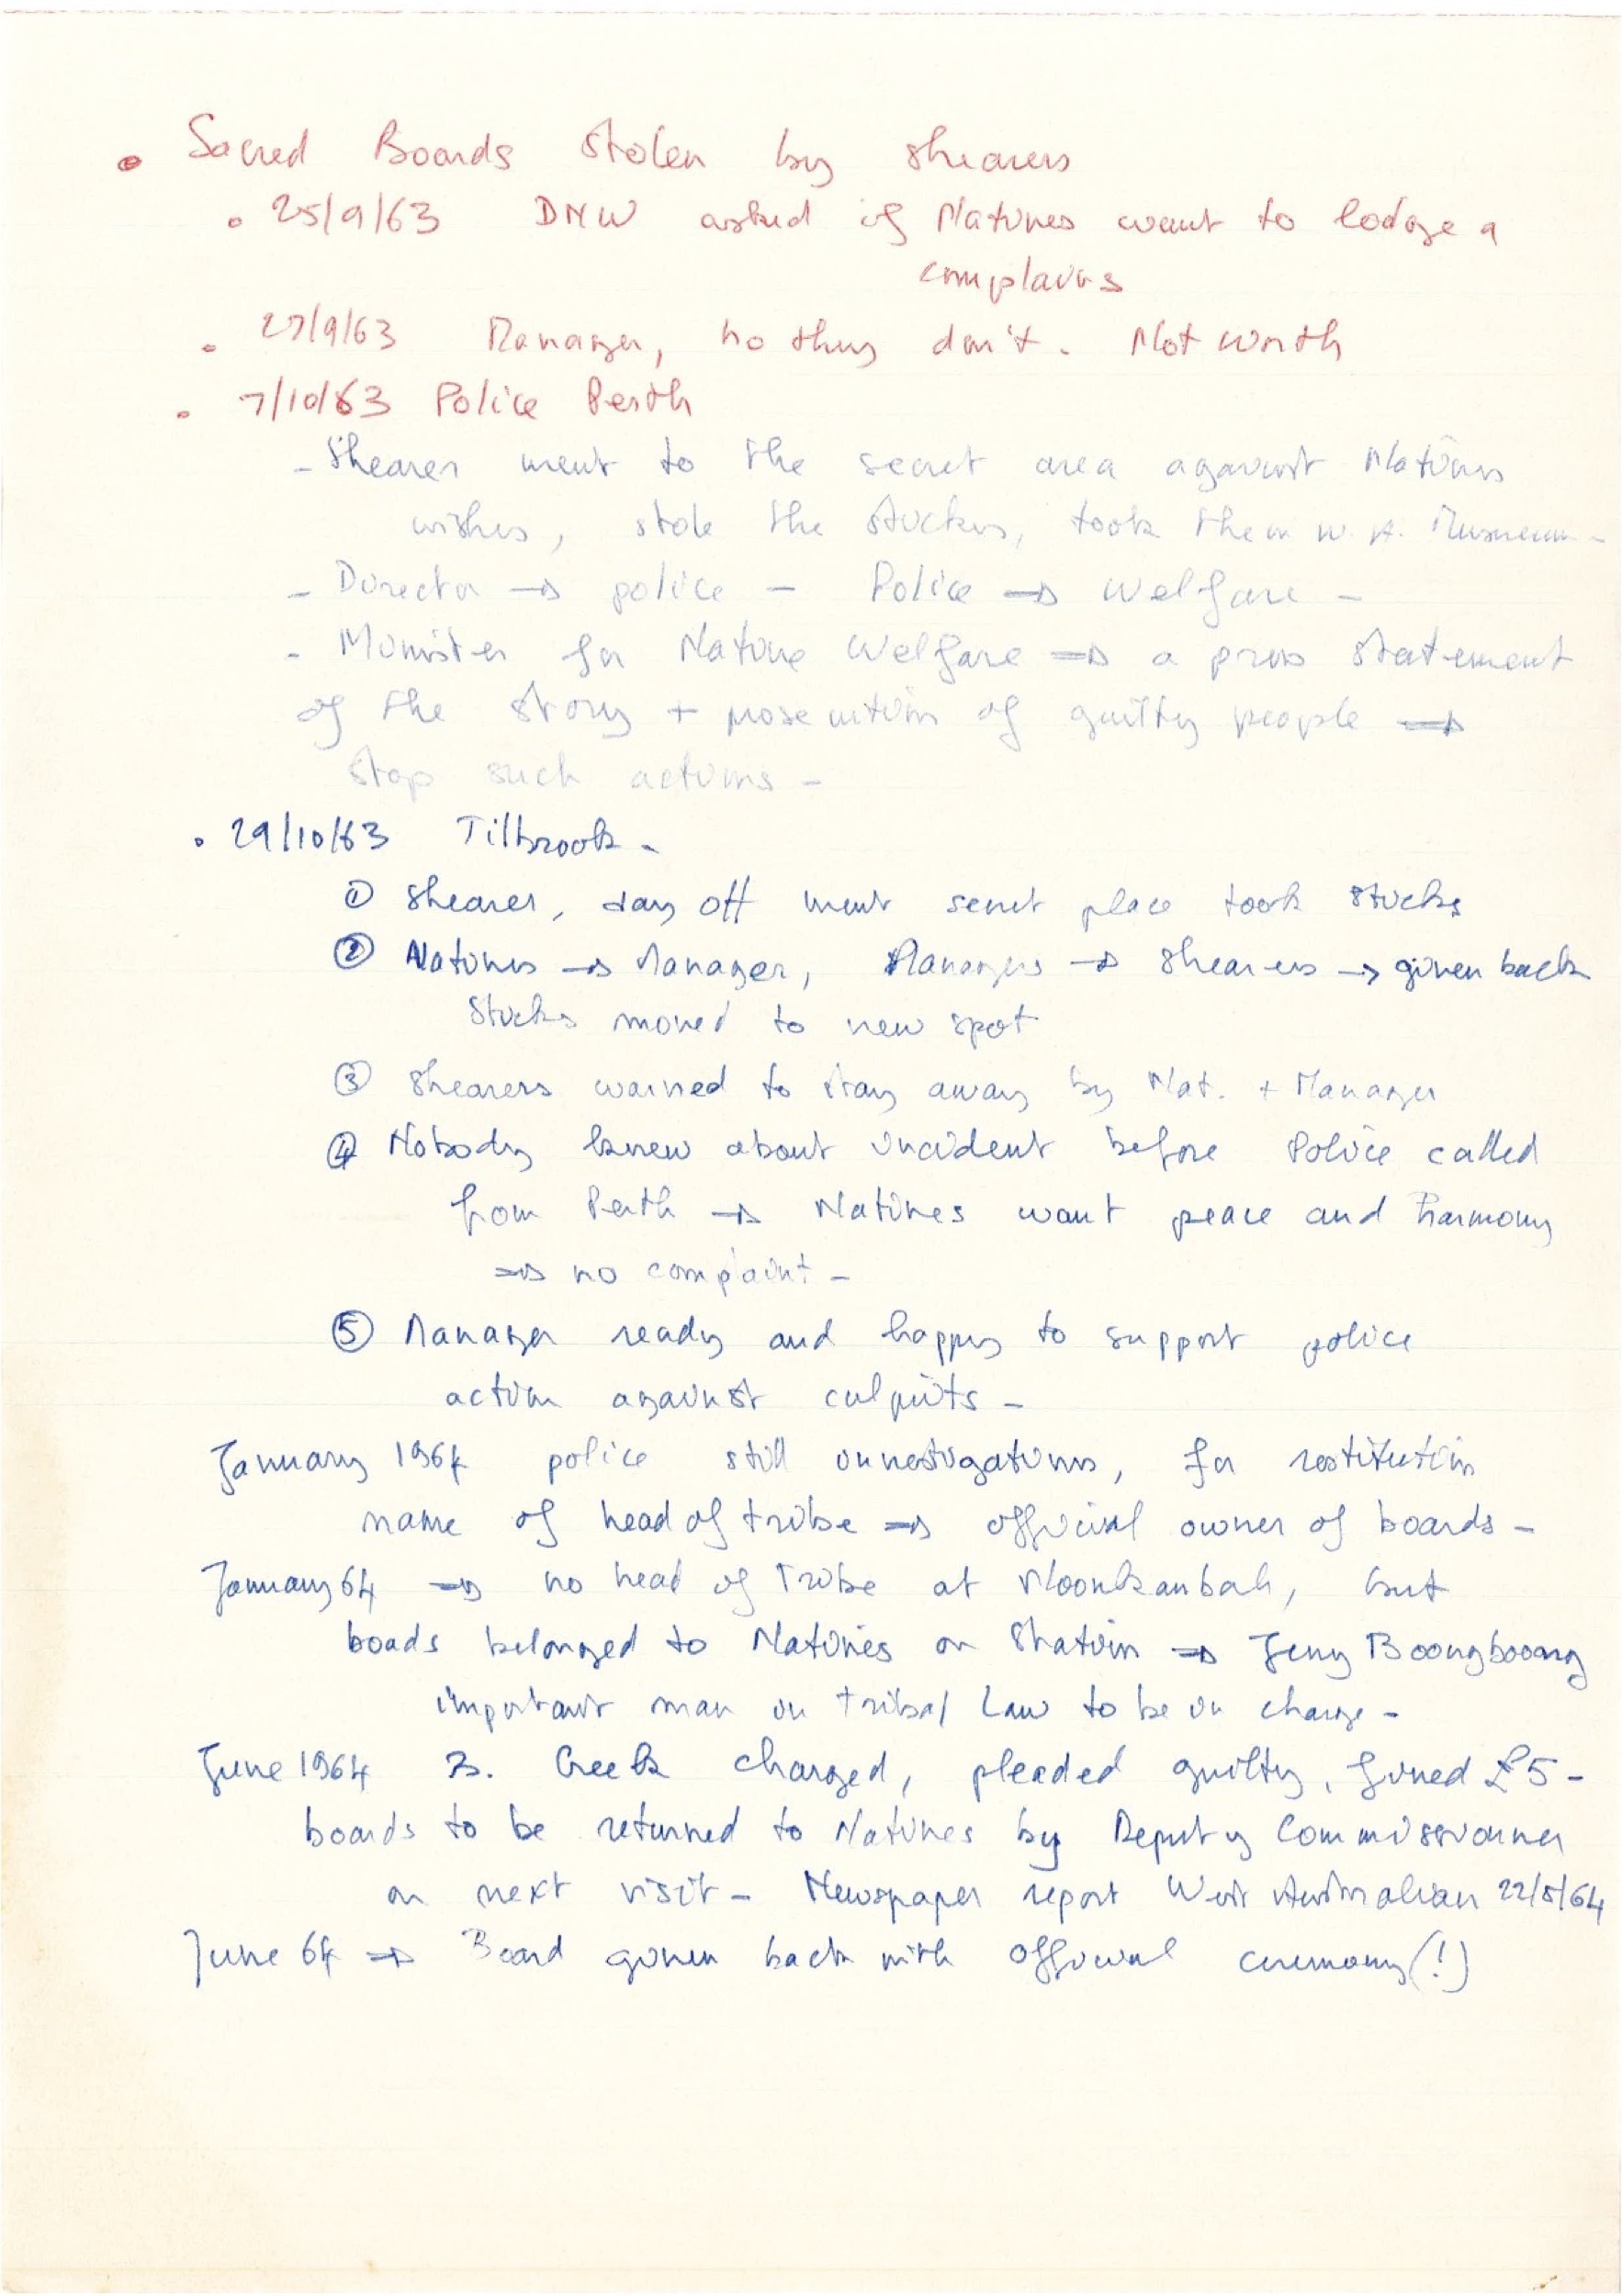 • Sacred Boards stolen by shearers
• 25/9/63 DNW asked if Natives want to lodge a
complaints
• 27/9/63 Manager, no they don't. Not worth
• 7/10/63 Police Perth
- Shearer went to the secret area against Natives
wishes, stole the sticks, took them W. A. Museum -
- Director → police - Police → Welfare -
- Minister for Native Welfare ⇒ a press statement
of the story + prosecution of guilty people ⇒
stop such actions -
• 29/10/63 Tilbrook -
① Shearer, day off went secret place took sticks
② Natives → Manager, Managers → Shearers → given back
Sticks moved to new spot
③ Shearers warned to stay away by Nat. + Manager
④ Nobody knew about incident before Police called
from Perth → Natives want peace and harmony
⇒ no complaint -
⑤ Manager ready and happy to support police
action against culprits -
January 1964 police still investigations, for restitution
name of head of tribe ⇒ official owner of boards -
January 64 ⇒ no head of Tribe at Noonkanbah, but
boads belonged to Natives on Station ⇒ Jerry Boongbooang
important man in tribal Law to be in charge -
June 1964 B. Creek charged, pleaded guilty, fined £5 -
boards to be returned to Natives by Deputy Commissionner
on next visit - Newspaper report West Australian 22/5/64
June 64 ⇒ Board given back with official ceremony (!)